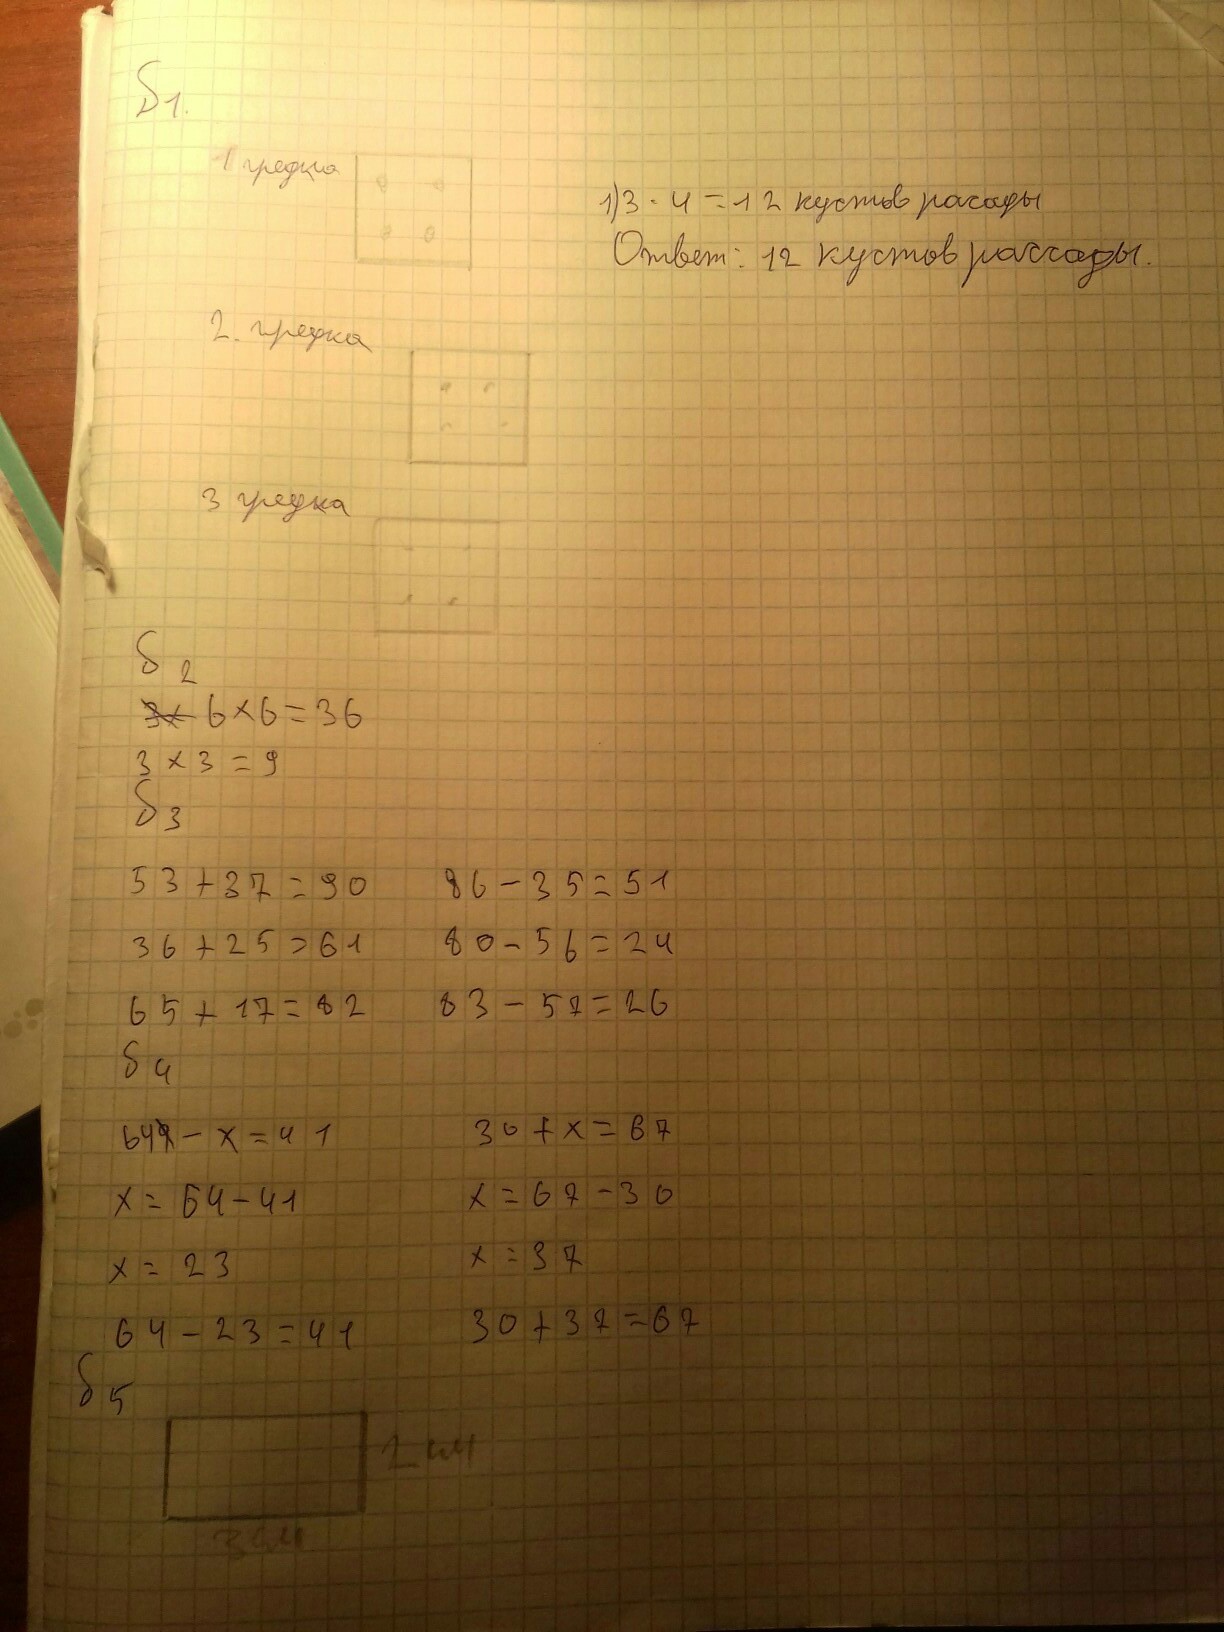 δ1.
1 грядка
1) 3 · 4 = 12 кустов расады
Ответ: 12 кустов рассады.
2. грядка
3 грядка
δ2
6×6=36
3×3=9
δ3
53+37=90 86-35=51
36+25=61 80-56=24
65+17=82 83-57=26
δ4
64-x=41 30+x=67
x=64-41 x=67-30
x=23 x=37
64-23=41 30+37=67
δ5
2 см
3 см